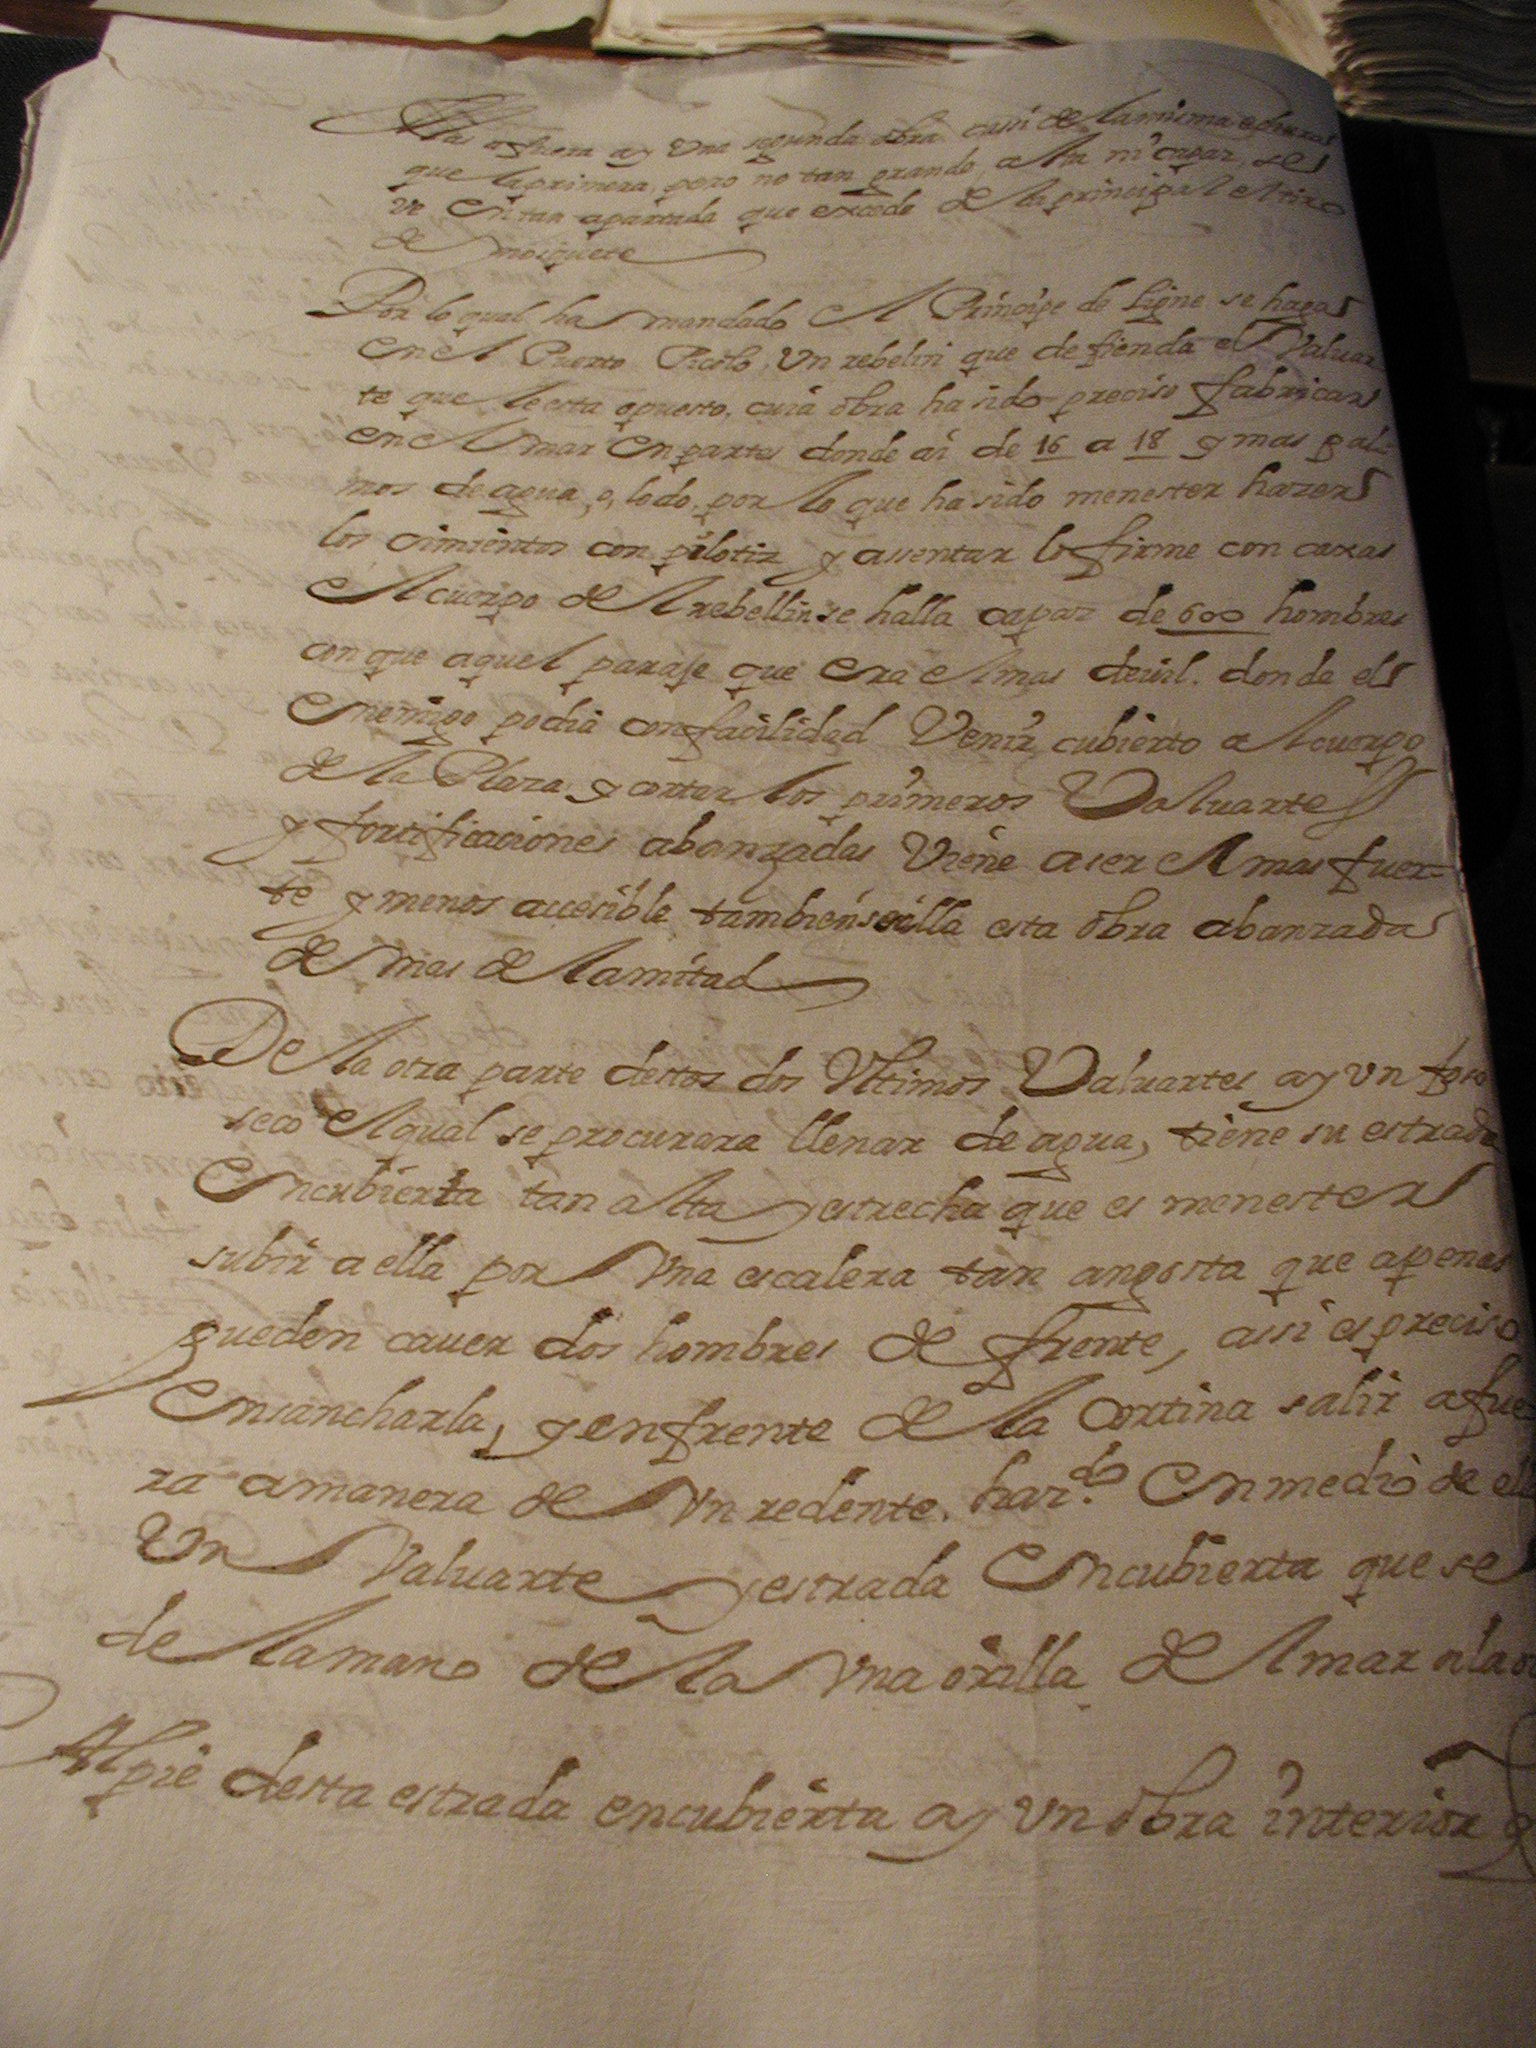 Mas afuera ay Una segunda obra casi de la misma
que la primera, pero no tan grande, alta ni capaz, se
ve en tan apartada que excede de la principal el tiro
de mosquete
Por lo qual ha mandado el Principe de Ligne se haga
en el Puerto Picolo, Un rebelin que defienda el Valuar
te que le esta opuesto, cuia obra ha sido preciso fabricar
en el mar en partes donde ai de 16 a 18 y mas pal-
mos de agua, o, lodo, por lo que ha sido menester hazer
los cimientos con pilotiz y assentar lo firme con caxas
el cuerpo del rebellin se halla capaz de 600 hombres
con que aquel paraje que era el mas devil. donde el
enemigo podia con facilidad Venir cubierto al cuerpo
de la Plaza y cortar los primeros Valuartes
y fortificaciones abanzadas Viene a ser el mas fuer-
te y menos accesible tambien se alla esta obra abanzada
de mas de la mitad
De la otra parte destos dos Ultimos Valuartes ay un foso
seco el qual se procurara llenar de agua, tiene su estrada
encubierta tan alta y estrecha que es menester
subir a ella por Una escalera tan angosta que apenas
pueden caver dos hombres de frente, assi es preciso
ensancharla, y enfrente de la cortina salir afue
ra a manera de Un redente. haz.do en medio de el
Un Valuarte y estrada encubierta que se
de la mano de la Una orilla del mar a la
Al pie desta estrada encubierta ay Un obra interior